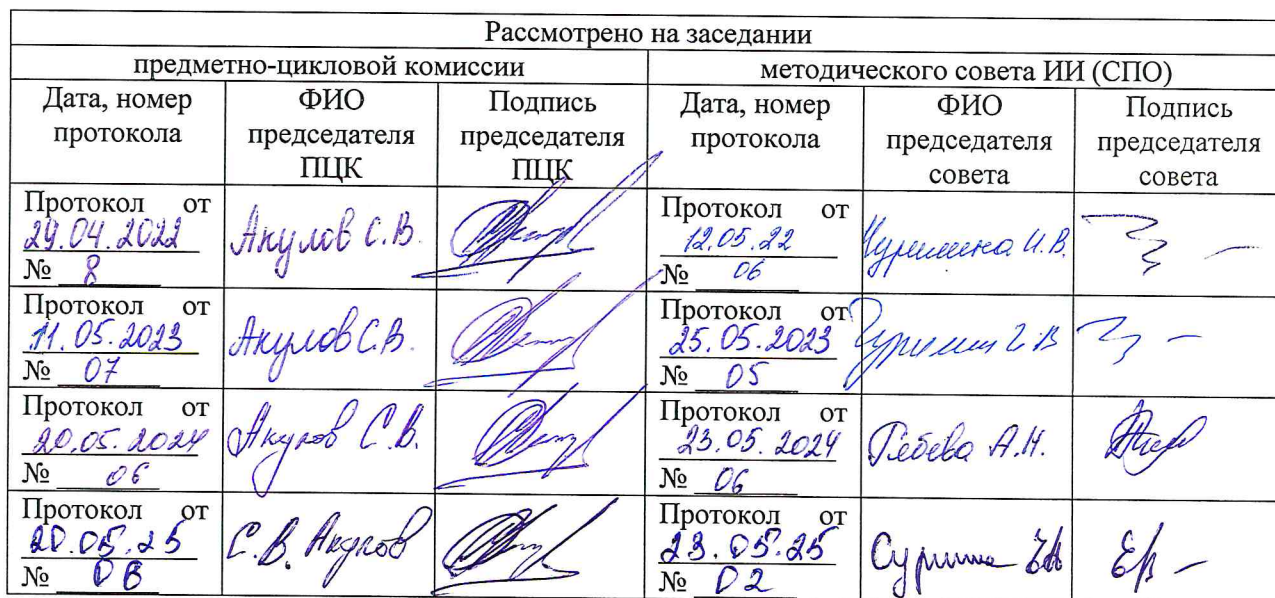 Рассмотрено на заседании
предметно-цикловой комиссии
методического совета ИИ (СПО)
Дата, номер протокола
ФИО председателя ПЦК
Подпись председателя ПЦК
Дата, номер протокола
ФИО председателя совета
Подпись председателя совета
Протокол от
29.04.2022
№ 8
Акулов С.В.
Протокол от
12.05.22
№ 06
И.В.
Протокол от
11.05.2023
№ 07
Акулов С.В.
Протокол от
25.05.2023
№ 05
Протокол от
20.05.2024
№ 06
Акулов С.В.
Протокол от
23.05.2024
№ 06
А.Н.
Протокол от
20.05.25
№ 06
С.В. Акулов
Протокол от
23.05.25
№ 02